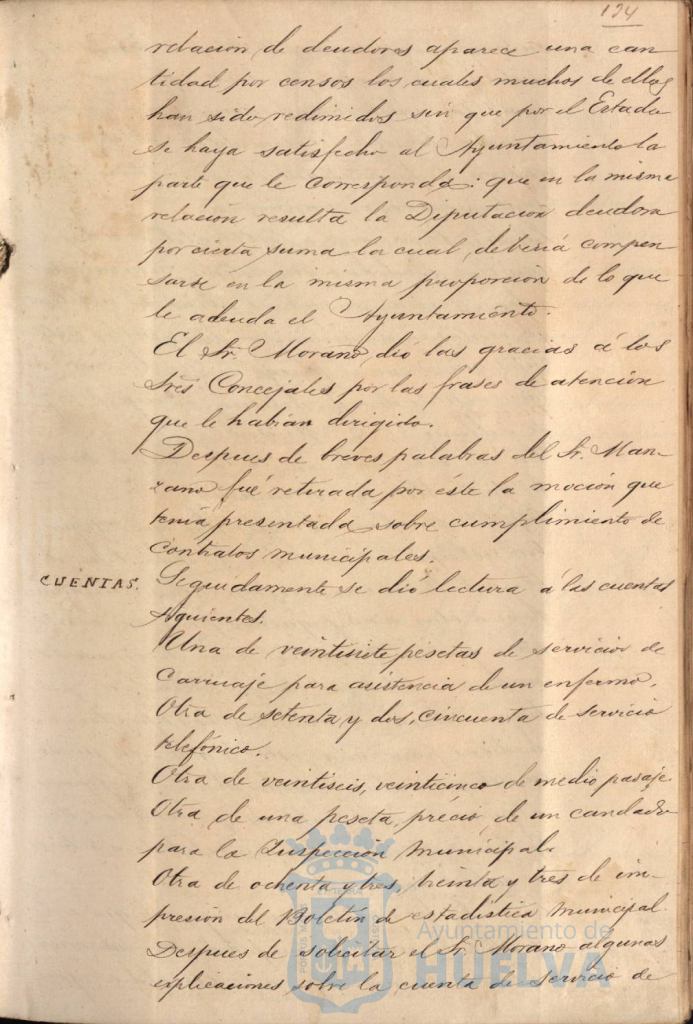 124
relación de deudores aparece una can
tidad por censos los cuales muchos de ellos
han sido redimidos sin que por el Estado
se haya satisfecho al Ayuntamiento la
parte que le corresponda: que en la misma
relación resulta la Diputación deudora
por cierta suma la cual, debería compen
sarse en la misma proporción de lo que
le adeuda el Ayuntamiento.
El Sr. Morano, dió las gracias á los
Sres Concejales por las frases de atención
que le habían dirigido.
Despues de breves palabras del Sr. Man-
zano fué retirada por éste la moción que
tenía presentada sobre cumplimiento de
contratos municipales.
CUENTAS. Seguidamente se dió lectura á las cuentas
siguientes.
Una de veintisiete pesetas de servicios de
carruaje para asistencia de un enfermo.
Otra de setenta y dos, cincuenta de servicio
telefónico.
Otra de veintiseis, veinticinco de medio pasaje.
Otra de una peseta, precio, de un candado
para la Inspección municipal.
Otra de ochenta y tres, treinta y tres de im-
presión del Boletín de estadística municipal.
Despues de solicitar el Sr. Morano algunas
explicaciones sobre la cuenta de servicio de
Ayuntamiento de
HUELVA